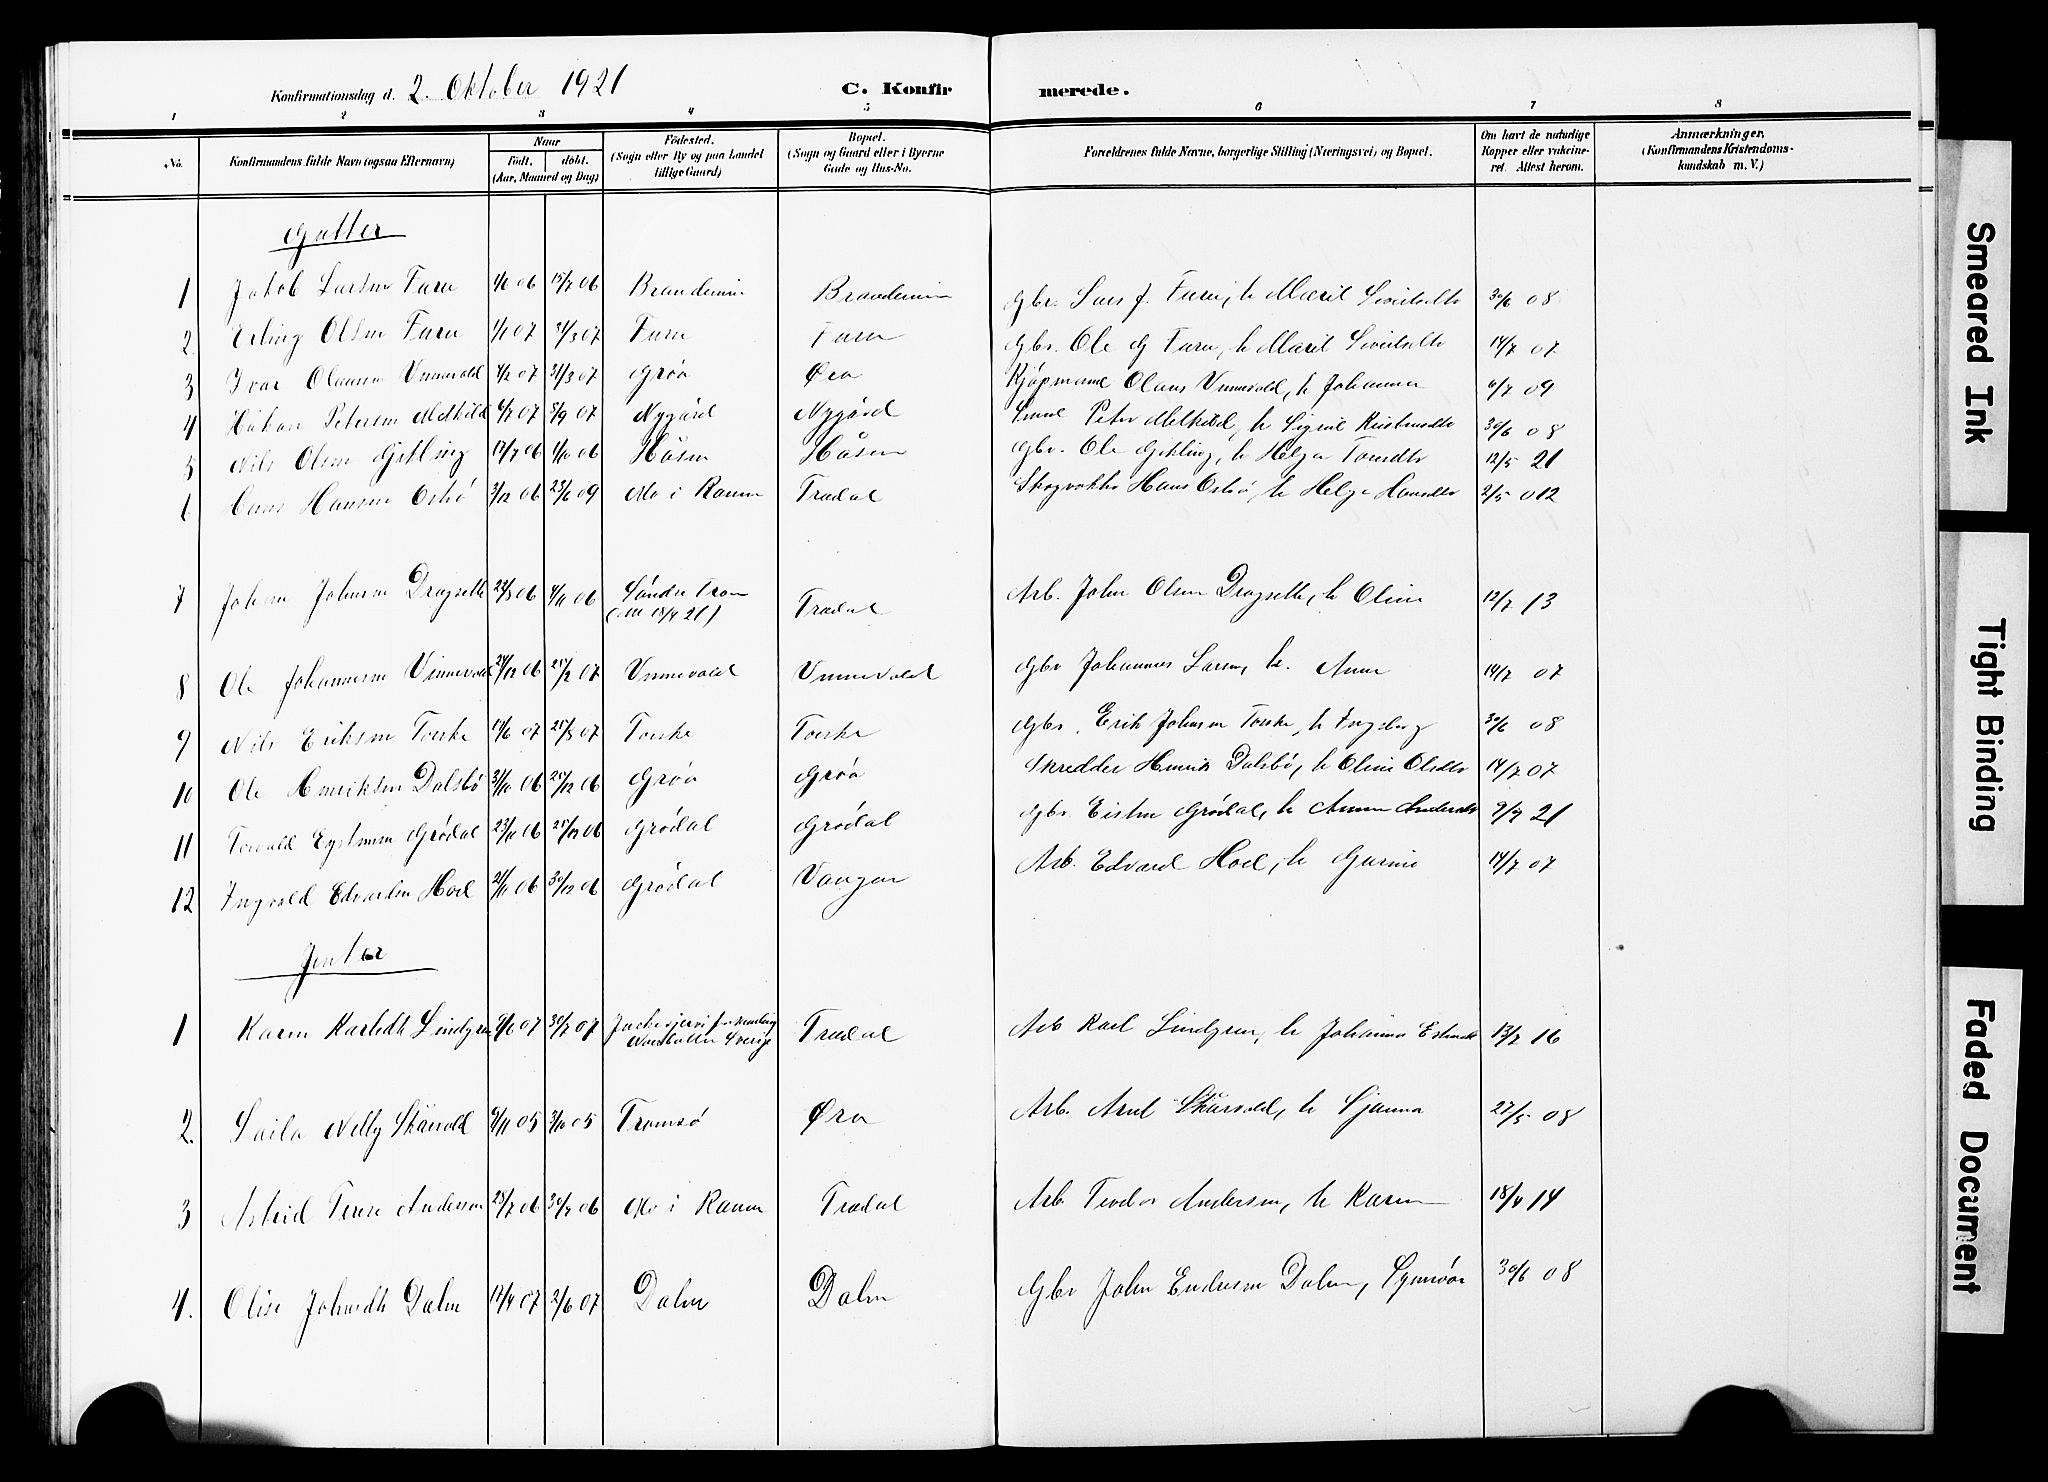 Konfirmationsdag d. 2. Oktober 1921
C. Konfirmerede.
1 2 3 4 5 6 7 8
No. Konfirmandens fulde Navn (ogsaa Efternavn) Naar født, døbt. (Aar, Maaned og Dag) Fødested. (Sogn eller By og paa Landet tillige Gaard) Bopæl. (Sogn og Gaard eller i Byerne Gade og Hus-No. Forældrenes fulde Navne, borgerlige Stilling (Næringsvei) og Bopæl. Om havt de naturlige Kopper eller vakcineret. Attest herom. Anmærkninger. (Konfirmandens Kristendomskundskab m. V.)
Gutter
1 Jakob Larsen Furu 06 15/7 06 Brandemin Brandemin Gbr. Lars J. Furu, h Marit Sivertsdtr 30/6 08
2. Erling Olsen Furu 1/1 07 31/3 07 Furu Furu Gbr. Ole G Furu, h Marit Sivertsdtr 14/7 07
3 Ivar Olausen Vinnevold 4/2 07 31/3 07 Grøa Øra Kjøpmand Olaus Vinnevold, h Johanna 6/7 09
4 Håkon Petersen Melkild 6/7 07 8/9 07 Nygård Nygård Peter Melkild, h Sigrid Kristensdtr 30/6 08
5 Nils Olsen Gikling 17/7 06 1/10 06 Håsen Håsen Gbr. Ole Gikling, h Helga Toresdtr 12/5 21
6 Hans Hansen Osbø 3/12 06 23/6 09 Mo i Ranen Trædal Skogvokter Hans Osbø, h Helga Hansdtr 2/5 012
7 Johan Johnsen Dragseth 22/8 06 4/11 06 Søndre Tran (Nn 18/4 21) Trædal Arb. John Olsen Dragseth, h Oline 12/7 13
8 Ole Johannesen Vinnevold 24/12 06 25/2 07 Vinnevold Vinnevold Gbr Johannes Larsen, h. Anne 14/7 07
9 Nils Eriksen Torske 07 25/3 07 Torske Torske Gbr. Erik Johnsen Torske, h Ingeborg 30/6 08
10 Ole Henriksen Dalsbø 31/10 06 25/12 06 Grøa Grøa Skredder Henrik Dalsbø, h Oline Olsdtr 14/7 07
11 Torvald Eystensen Grødal 23/11 06 25/12 06 Grødal Grødal Gbr. Eisten Grødal, h Anne Andersdtr 9/7 21
12 Ingvald Edvardsen Hoel 21/11 06 30/12 06 Grødal Vangen Arb. Edvard Hoel, h Gurine 14/7 07
Jenter
1 Karen Karlsdtr Lindgren 9/6 07 30/7 07 Norrbotten Sverige Trædal Arb Karl Lindgren, h Johanna 13/7 16
2. Laila Nelly Skårvold 9/11 05 3/10 05 Tromsø Øra Arb. Arnt Skårvold, h Gjanna 27/5 08
3 Astrid Terese Andersen 23/7 06 30/7 06 Mo i Ranen Trædal Arb. Teodor Andersen, h Karen 18/4 14
4. Olise Johnsdtr Dalen 14/4 07 2/6 07 Dalen Dalen Gbr John Endresen Dalen, Synnøve 30/6 08
Smeared Ink
Tight Binding
Faded Document